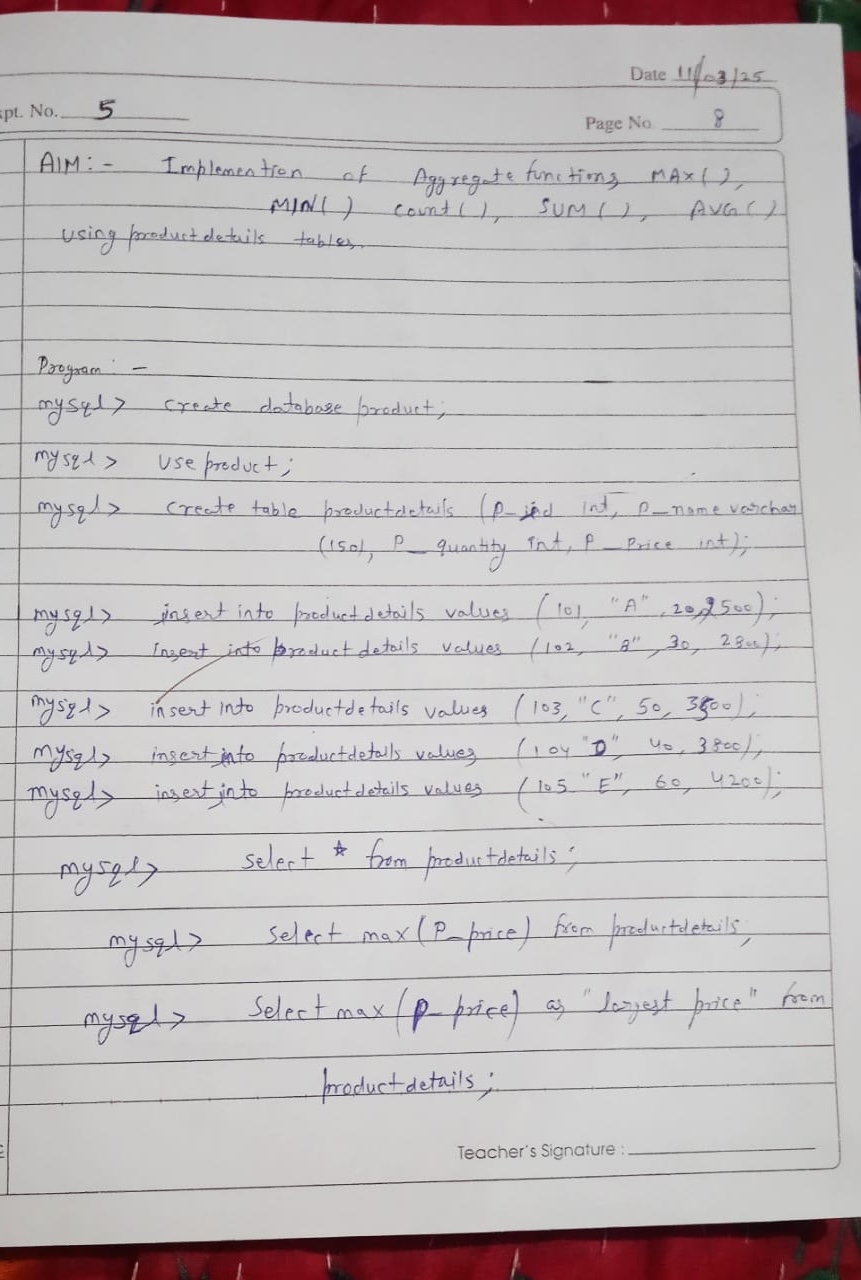 Date 11/03/25
pt. No. 5
Page No. 8
AIM:- Implemention of Aggregate functions MAX(),
MIN() count(), SUM(), AVG()
using productdetails tables.
Program:-
mysql> create database product;
mysql> use product;
mysql> create table productdetails (P_id int, P_name varchar
(150), P_quantity int, P_Price int);
mysql> insert into productdetails values (101, "A", 20, 2500);
mysql> Insert into product details values (102, "B", 30, 2800);
mysql> insert into productdetails values (103, "C", 50, 3500);
mysql> insert into productdetails values (104 "D", 40, 3800);
mysql> insert into productdetails values (105 "E", 60, 4200);
mysql> select * from productdetails;
mysql> select max(P_price) from productdetails;
mysql> Select max(p_price) as "largest price" from
productdetails;
Teacher's Signature :